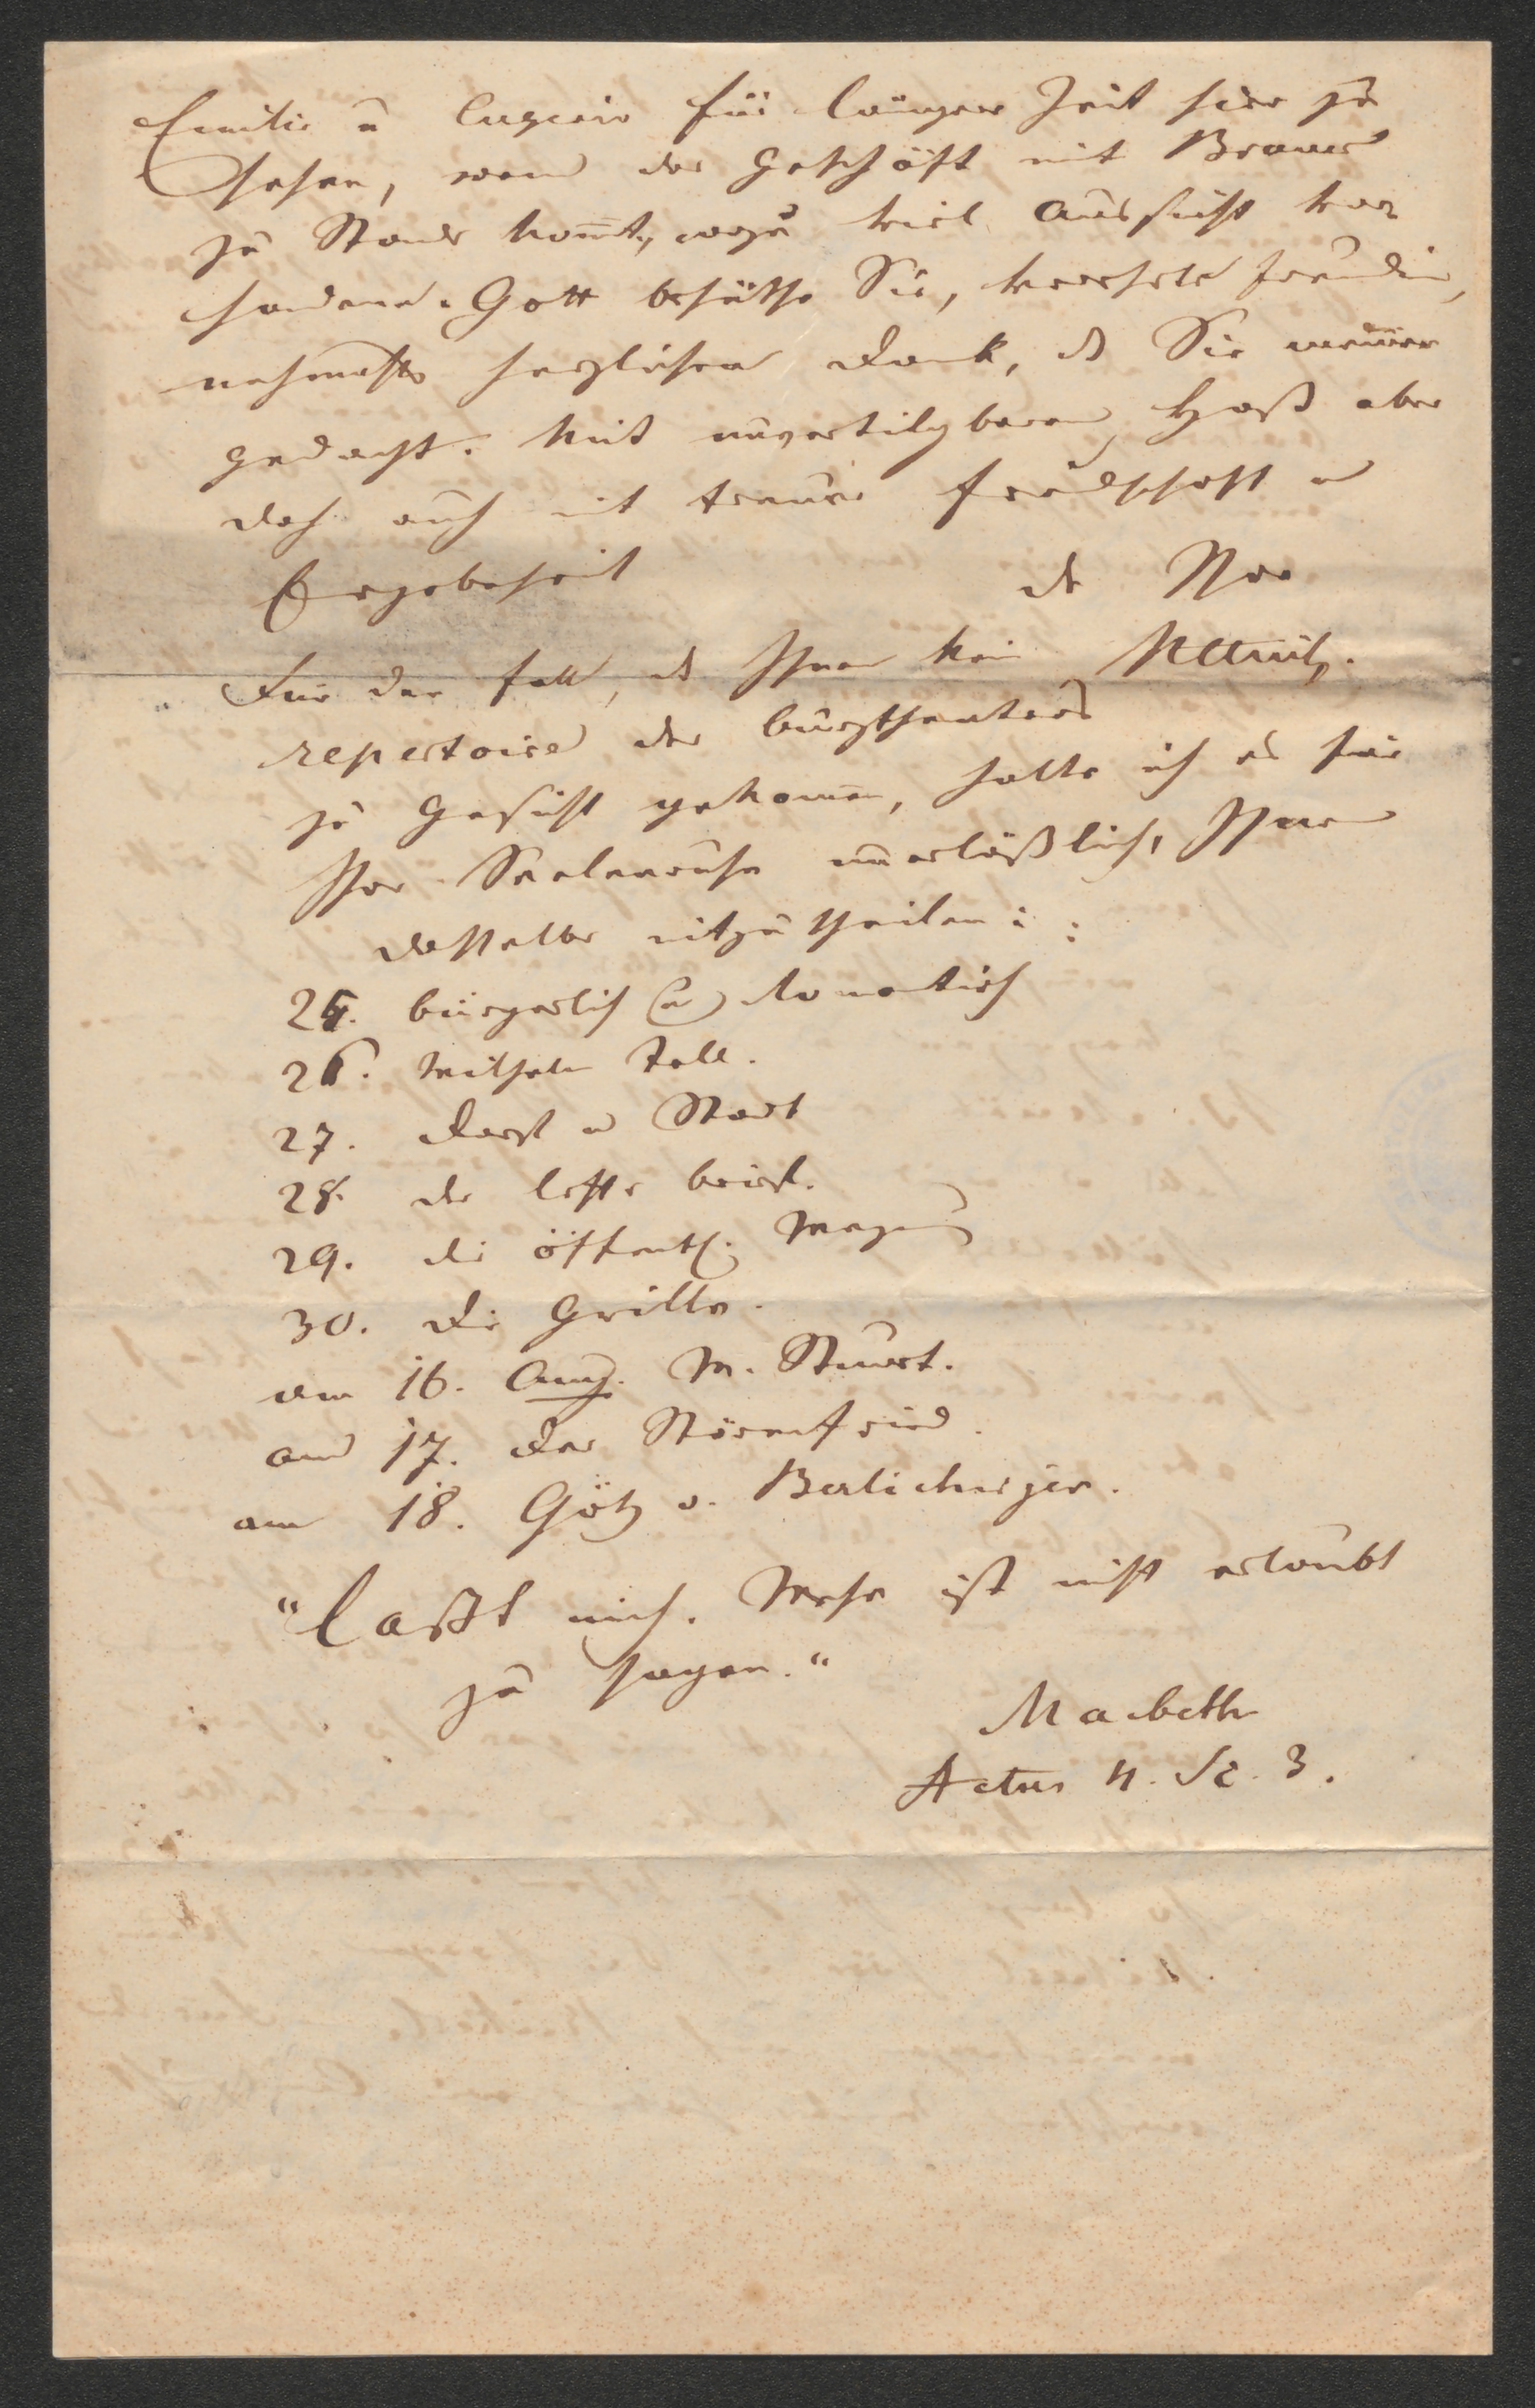 Emilie u Eugenie für längere Zeit hier zu
sehen, wenn das Geschäft mit Brauer
zu Stande kom̅t, wozu viel Aussicht vor
handen. Gott behüthe Sie, verehrte Freundin,
nehmen herzlichen Dank, ds Sie meiner
gedacht. Mit unvertilgbarem Haß aber
doch auch mit treuer Freundschaft u
Ergebenheit
Ihr
Für den Fall, ds Ihnen kein
repertoire des Burgtheaters
zu Gesicht gekom̅en, halte ich es für
Ihre Seelenruhe unerläßlich, Ihnen
dasselbe mitzutheilen:
25. bürgerlich u romantisch
26. Wilhelm Tell.
27. Dorf u Stadt
28. der letzte Brief.
29. die öffentl.
30. die Grille.
am 16. Aug. M. Stuart.
am 17. der Störenfried.
am 18. Götz v. Berlichingen.
"Laßt mich. Mehr ist nicht erlaubt
zu sagen."
Macbeth
Actus 4. Sc. 3.